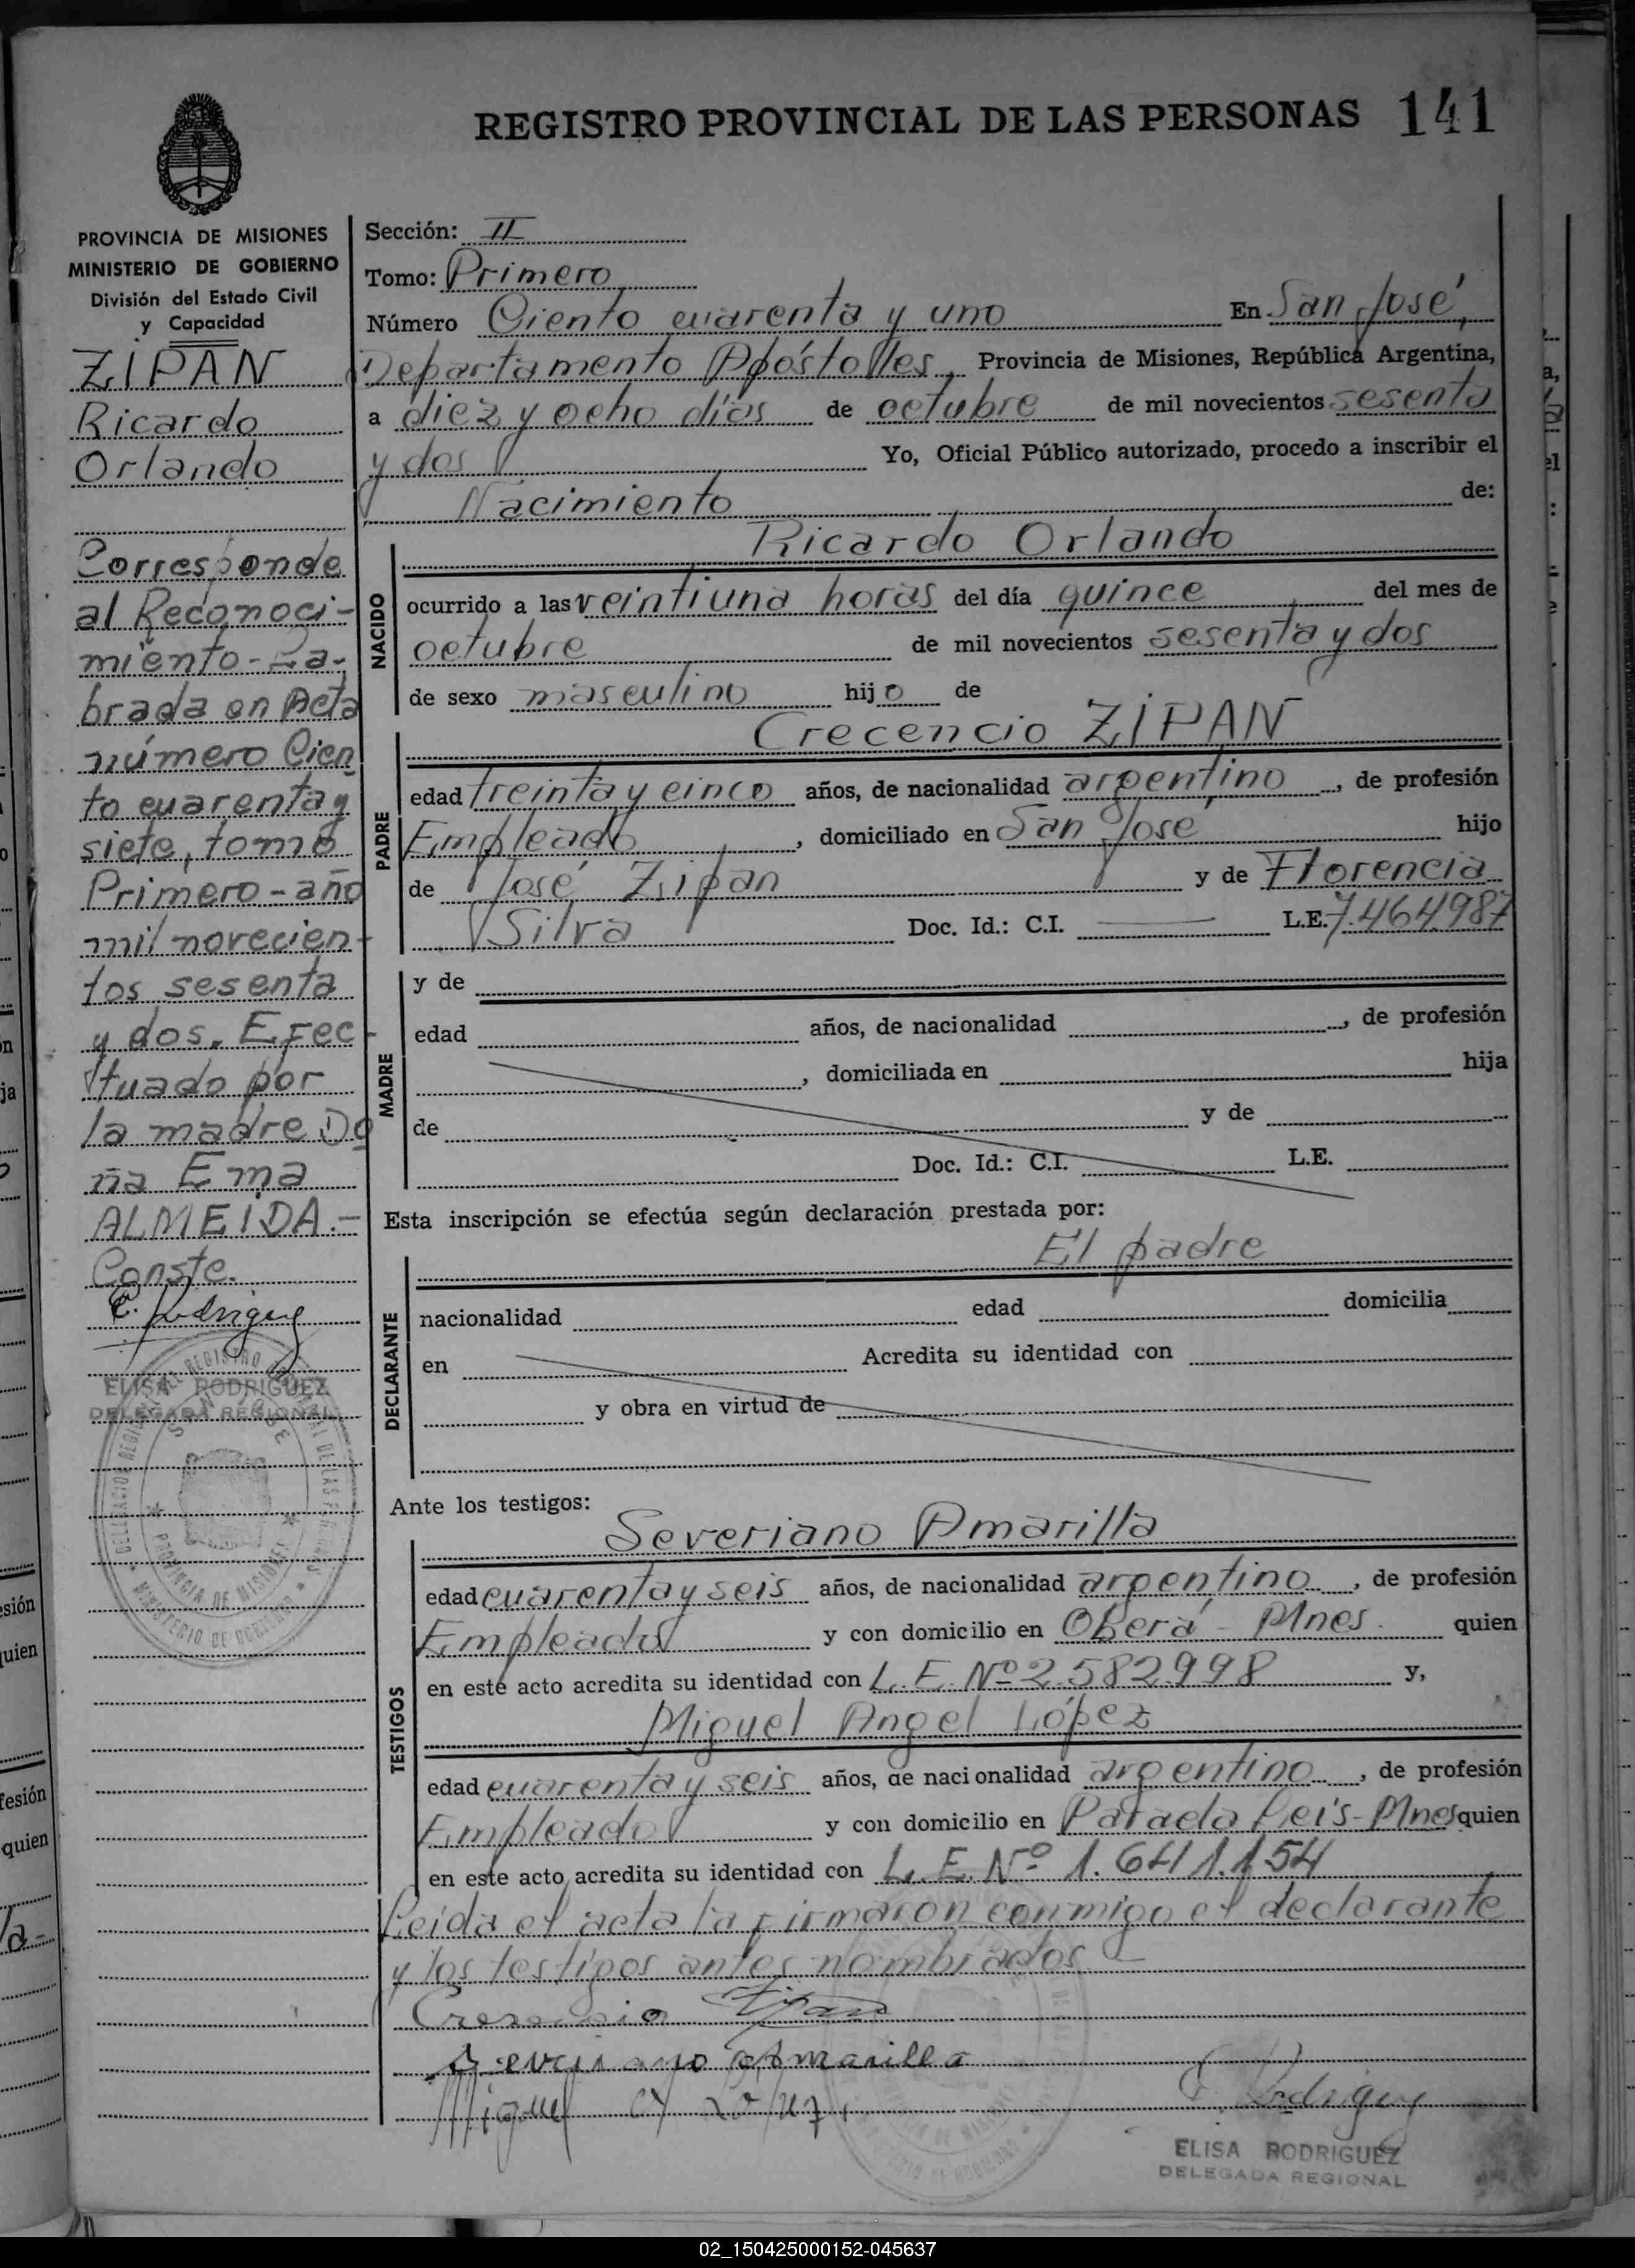 REGISTRO PROVINCIAL DE LAS PERSONAS 141
PROVINCIA DE MISIONES
MINISTERIO DE GOBIERNO
División del Estado Civil
y Capacidad
ZIPAN
Ricardo
Orlando
Corresponde
al Reconoci-
miento-La-
brada en Acta
número Cien
to cuarenta y
siete, tomo
Primero-año
mil novecien-
tos sesenta
y dos. Efec-
tuado por
la madre Do
ña Ema
ALMEIDA.-
Conste.
E. Rodriguez
ELISA RODRIGUEZ
DELEGADA REGIONAL
Sección: II
Tomo: Primero
Número Ciento cuarenta y uno En San José,
Departamento Apóstolles, Provincia de Misiones, República Argentina,
a diez y ocho días de octubre de mil novecientos sesenta
y dos Yo, Oficial Público autorizado, procedo a inscribir el
Nacimiento de:
Ricardo Orlando
NACIDO
ocurrido a las veintiuna horas del día quince del mes de
octubre de mil novecientos sesenta y dos
de sexo masculino hijo de
Crecencio ZIPAN
PADRE
edad treinta y cinco años, de nacionalidad argentino, de profesión
Empleado, domiciliado en San José hijo
de José Zipan y de Florencia
Silva Doc. Id.: C.I. L.E. 7.464.987
MADRE
y de
edad años, de nacionalidad , de profesión
, domiciliada en hija
de y de
Doc. Id.: C.I. L.E.
Esta inscripción se efectúa según declaración prestada por:
El padre
DECLARANTE
nacionalidad edad domicilia
en Acredita su identidad con
y obra en virtud de
Ante los testigos:
Severiano Amarilla
TESTIGOS
edad cuarenta y seis años, de nacionalidad argentino, de profesión
Empleado y con domicilio en Oberá - Mnes. quien
en este acto acredita su identidad con L.E. Nº 2.582.998 y,
Miguel Angel López
edad cuarenta y seis años, de nacionalidad argentino, de profesión
Empleado y con domicilio en Mnes quien
en este acto acredita su identidad con L.E. Nº 1.641.154
Leida el acta la firmaron conmigo el declarante
y los testigos antes nombrados
Crecencio Zipan
Severiano Amarilla
Miguel A Lopez
E. Rodriguez
ELISA RODRIGUEZ
DELEGADA REGIONAL
02_150425000152-045637